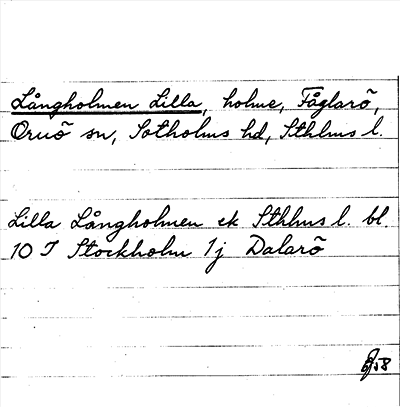 Långholmen Lilla, holme, Fåglarö,
Ornö sn, Sotholms hd, Sthlms l.
Lilla Långholmen ek Sthlms l. bl.
10 I Stockholm 1j Dalarö